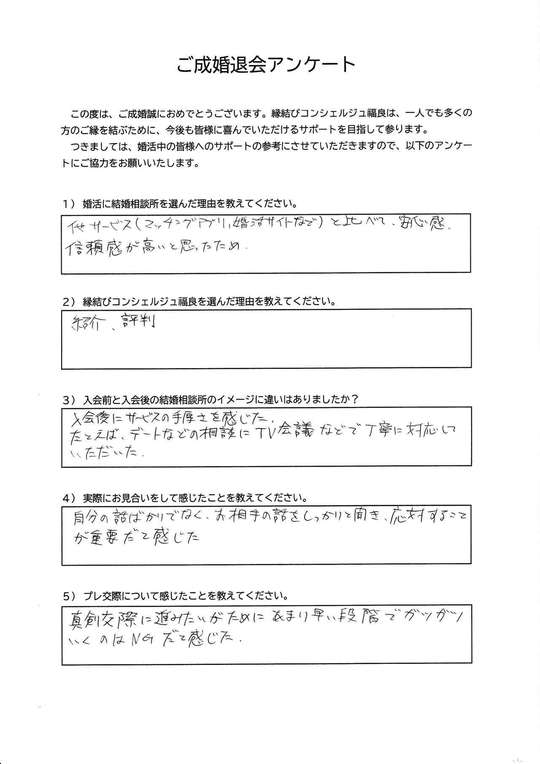 ご成婚退会アンケート
この度は、ご成婚誠におめでとうございます。縁結びコンシェルジュ福良は、一人でも多くの
方のご縁を結ぶために、今後も皆様に喜んでいただけるサポートを目指して参ります。
つきましては、婚活中の皆様へのサポートの参考にさせていただきますので、以下のアンケー
トにご協力をお願いいたします。
1）婚活に結婚相談所を選んだ理由を教えてください。
他サービス(マッチングアプリ,婚活サイトなど)と比べて、安心感、
信頼感が高いと思ったため.
2）縁結びコンシェルジュ福良を選んだ理由を教えてください。
紹介、評判
3）入会前と入会後の結婚相談所のイメージに違いはありましたか？
入会後にサービスの手厚さを感じた.
たとえば、デートなどの相談にTV会議などで丁寧に対応して
いただいた.
4）実際にお見合いをして感じたことを教えてください。
自分の話ばかりでなく、お相手の話をしっかりと聞き、応対すること
が重要だと感じた
5）プレ交際について感じたことを教えてください。
真剣交際に進みたいがためにあまり早い段階でガツガツ
いくのはNGだと感じた.